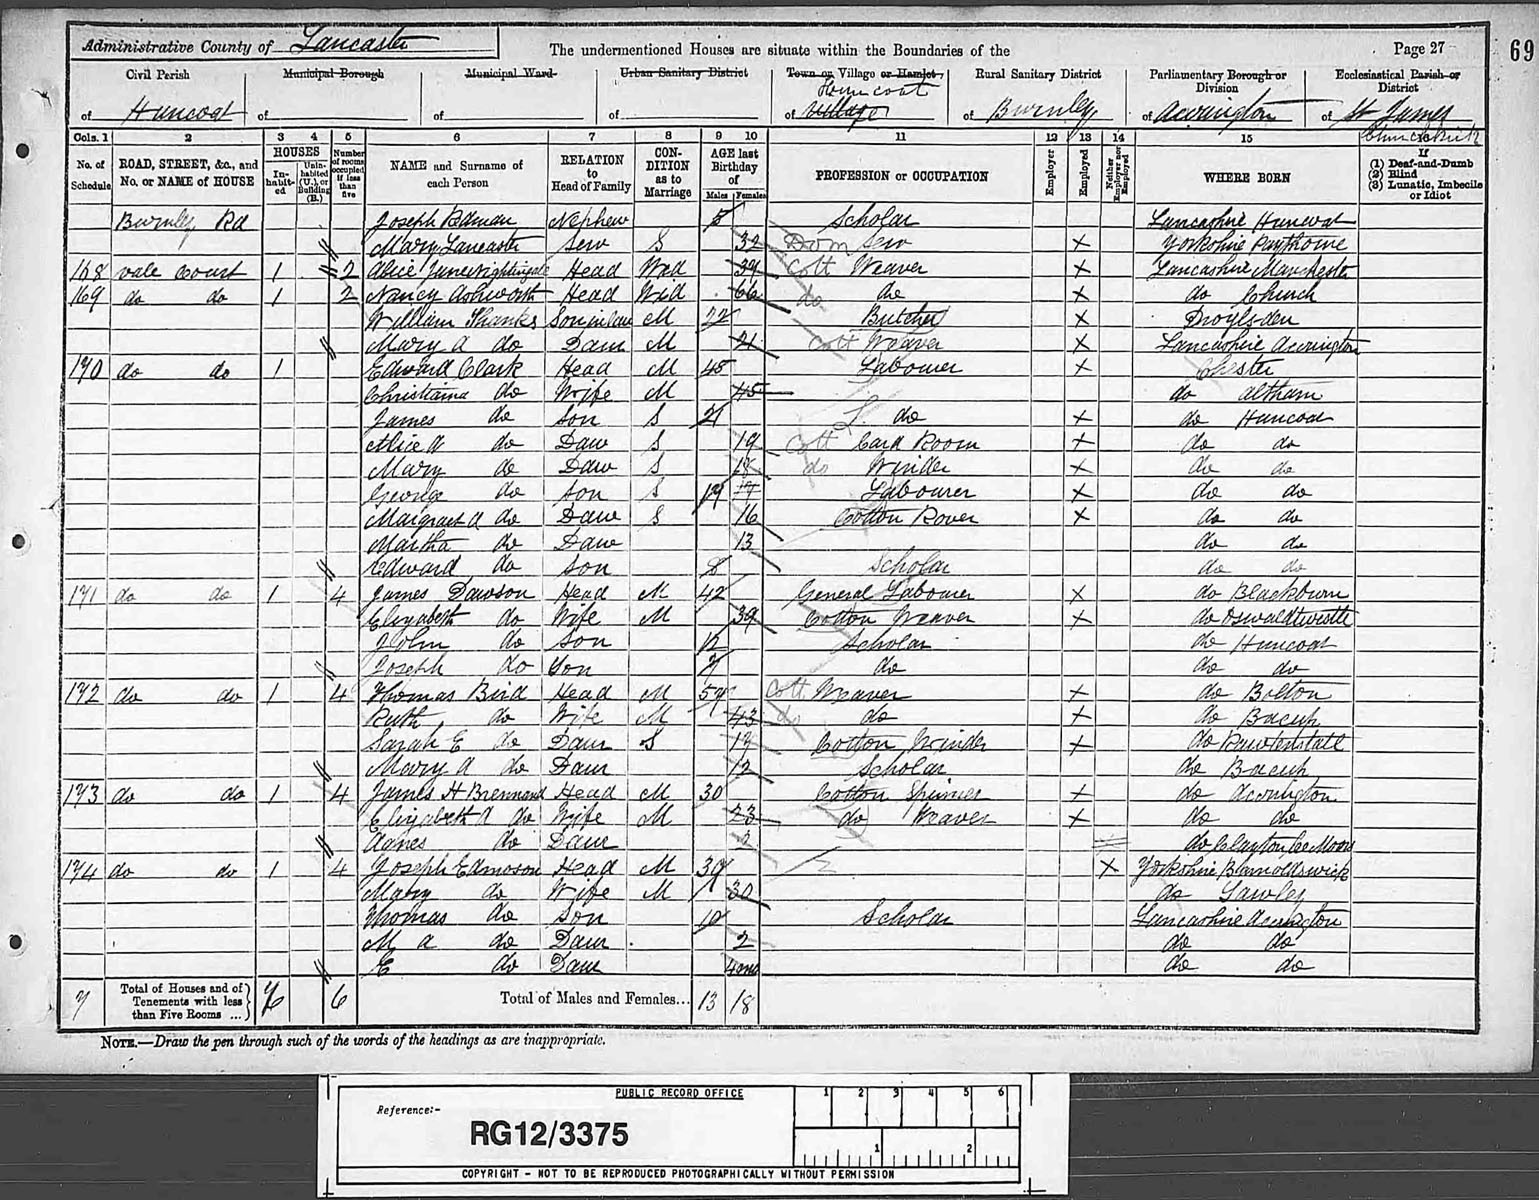 Administrative County of Lancaster
The undermentioned Houses are situate within the Boundaries of the
Page 27
69
Civil Parish of Huncoat
Municipal Borough of
Municipal Ward of
Urban Sanitary District of
Town or Village or Hamlet of Huncoat Village
Rural Sanitary District of Burnley
Parliamentary Borough or Division of Accrington
Ecclesiastical Parish or District of St James
Cols. 1 2 3 4 5 6 7 8 9 10 11 12 13 14 15 16
No. of Schedule
ROAD, STREET, &c., and No. or NAME of HOUSE
HOUSES
In-habit-ed
Unin-habited (U.), or Building (B.)
Number of rooms occupied if less than five
NAME and Surname of each Person
RELATION to Head of Family
CON-DITION as to Marriage
AGE last Birthday of
Males Females
PROFESSION or OCCUPATION
Employer
Employed
Neither Employer nor Employed
WHERE BORN
If
(1) Deaf-and-Dumb
(2) Blind
(3) Lunatic, Imbecile or Idiot
Burnley Rd Joseph Redman Nephew 5 Scholar Lancashire Huncoat
Mary Lancaster Serv S 32 Dom Serv X Yorkshire Paythorne
168 Vale Court 1 2 Alice Jane Nightingale Head Wid 39 Cott Weaver X Lancashire Manchester
169 do do 1 2 Nancy Ashworth Head Wid 66 do do X do Church
William Shanks Son in law M 22 Butcher X Droylsden
Mary A do Daur M 21 Cott Weaver X Lancashire Accrington
170 do do 1 Edward Clark Head M 45 Labourer X Chester
Christiana do Wife M 45 do Altham
James do Son S 21 do X do Huncoat
Alice A do Daur S 19 Cott Card Room X do do
Mary do Daur S 18 do Winder X do do
George do Son S 19 Labourer X do do
Margaret A do Daur S 16 Cotton Rover X do do
Martha do Daur 13 do do
Edward do Son 8 Scholar do do
171 do do 1 4 James Dawson Head M 42 General Labourer X do Blackburn
Elizabeth do Wife M 39 Cotton Weaver X do Oswaldtwistle
John do Son 12 Scholar do Huncoat
Joseph do Son 7 do do do
172 do do 1 4 Thomas Bird Head M 57 Cott Weaver X do Bolton
Ruth do Wife M 43 do do X do Bacup
Sarah E do Daur S 17 Cotton Winder X do Rawtenstall
Mary A do Daur 12 Scholar do Bacup
173 do do 1 4 James H Brennand Head M 30 Cotton Spinner X do Accrington
Elizabeth A do Wife M 23 do Weaver X do do
Agnes do Daur 2 do Clayton le Moors
174 do do 1 4 Joseph Edmoson Head M 39 X Yorkshire Barnoldswick
Mary do Wife M 30 do Sawley
Thomas do Son Scholar Lancashire Accrington
M A do Daur 2 do do
E do Daur 4 mo do do
7 Total of Houses and of Tenements with less than Five Rooms ... 6 Total of Males and Females... 13 18
NOTE.—Draw the pen through such of the words of the headings as are inappropriate.
PUBLIC RECORD OFFICE
Reference:-
RG12/3375
1 2 3 4 5 6
1 2
COPYRIGHT - NOT TO BE REPRODUCED PHOTOGRAPHICALLY WITHOUT PERMISSION